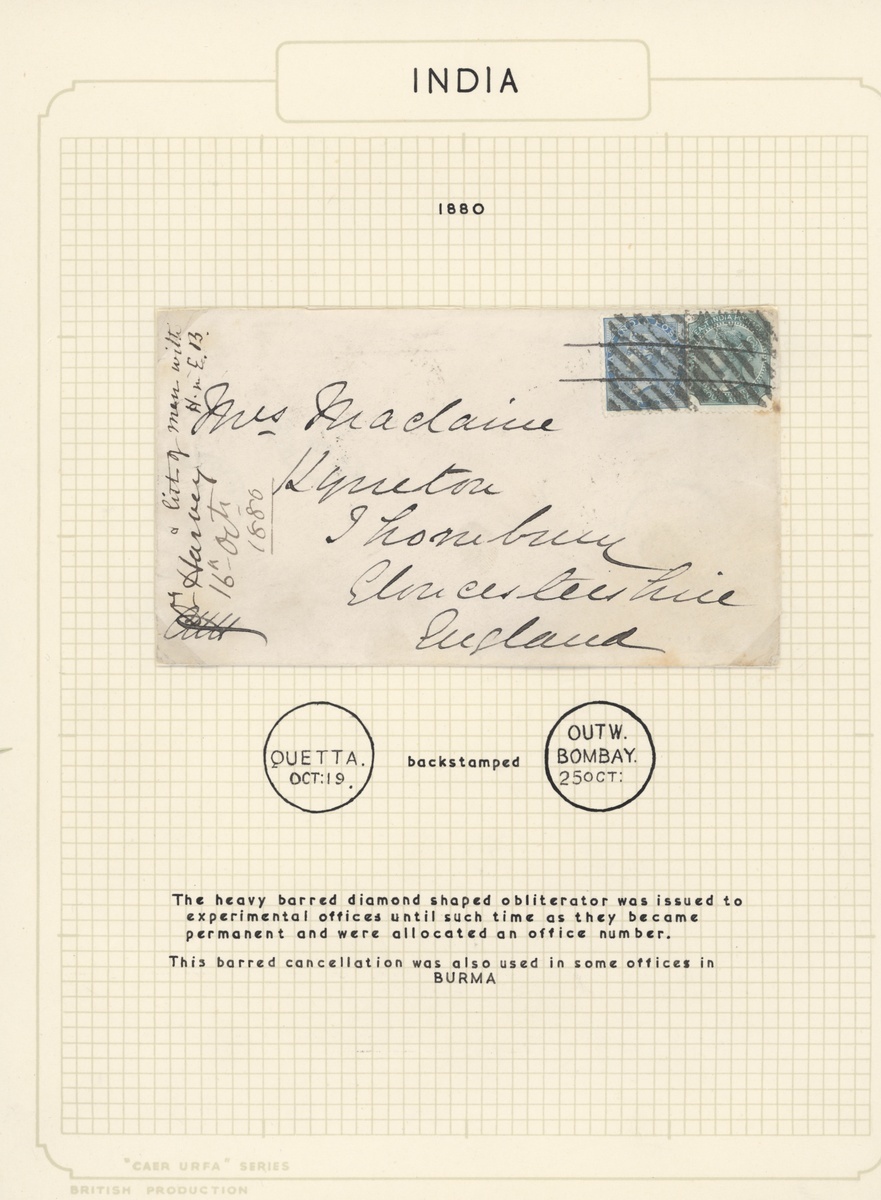 INDIA
1880
a list of men with
Harvey H. M. E. B.
16th Oct
1880
Mrs Maclaine
Kyneton
Thornbury
Gloucestershire
England
EAST INDIA
QUETTA.
OCT:19.
backstamped
OUTW.
BOMBAY.
25OCT:
The heavy barred diamond shaped obliterator was issued to
experimental offices until such time as they became
permanent and were allocated an office number.
This barred cancellation was also used in some offices in
BURMA
"CAER URFA" SERIES
BRITISH PRODUCTION